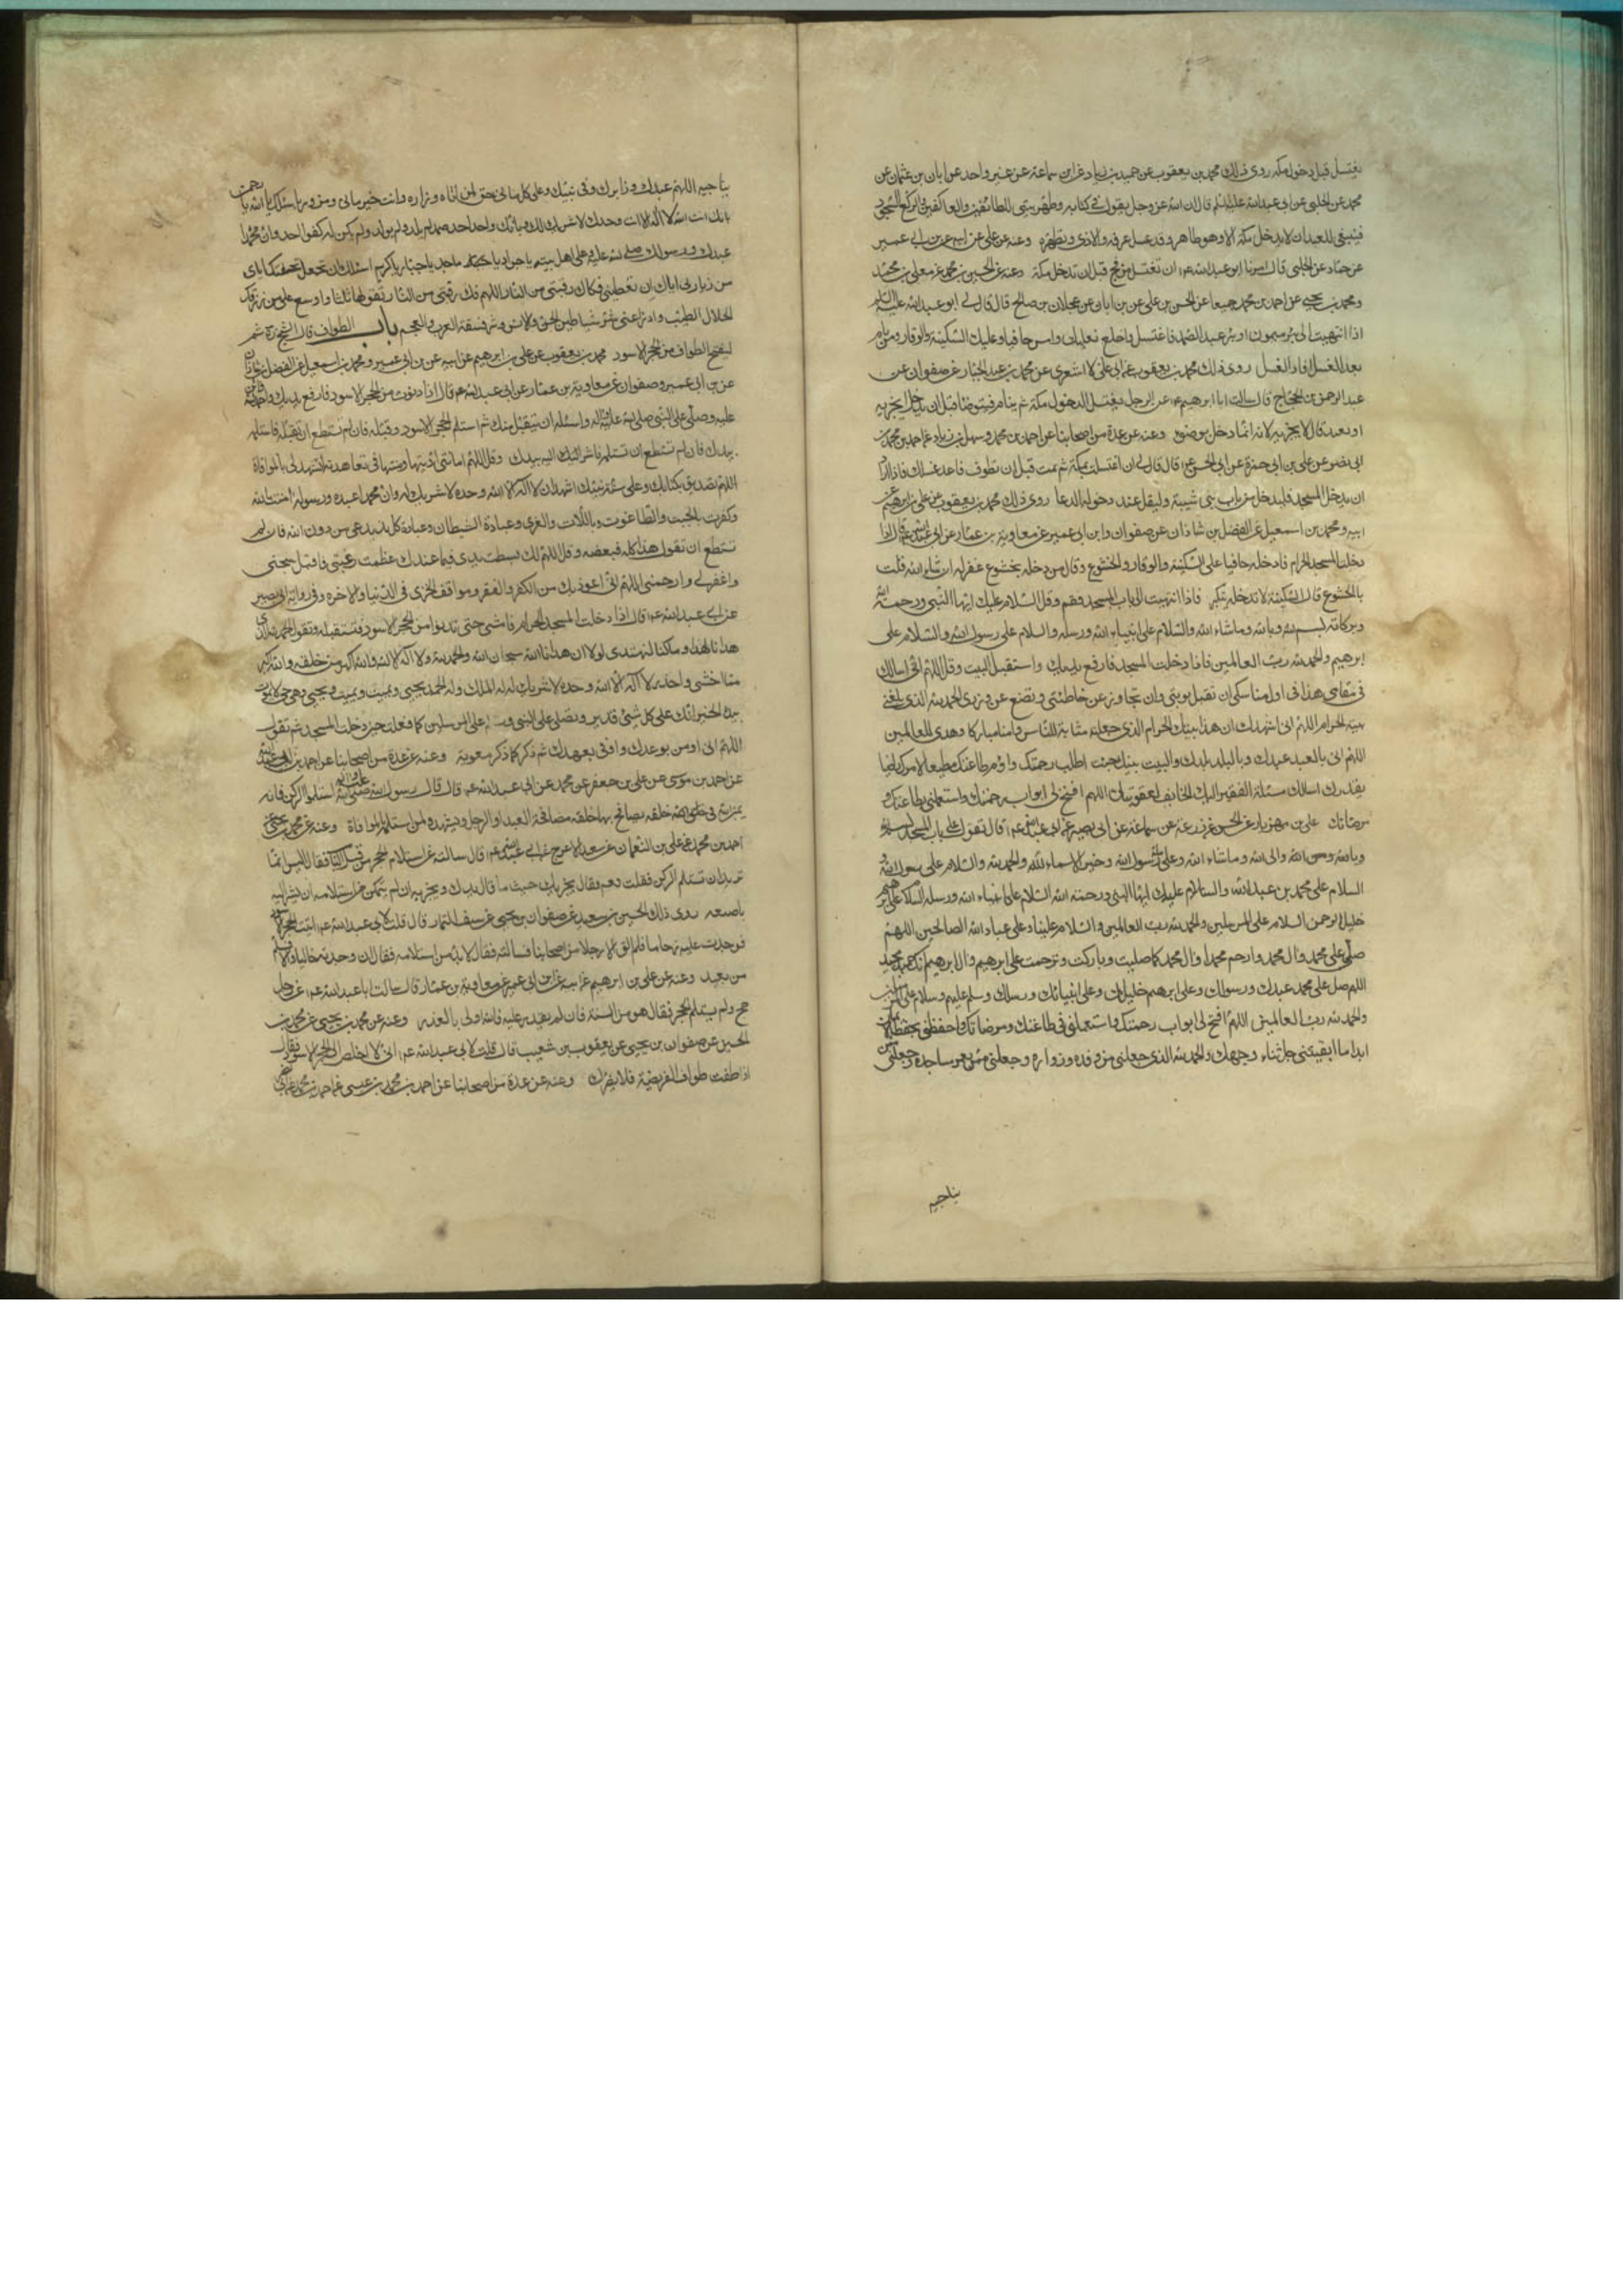 يغتسل قبل دخول مكة روى ذلك محمد بن يعقوب عن حميد بن زياد عن ابن سماعة عن غير واحد عن ابان بن عثمان عن
محمد عن الحلبي عن ابي عبدالله عليه السلم قال ان الله عز وجل يقول في كتابه وطهر بيتي للطائفين والعاكفين والركع السجود
فينبغي للعبد ان لا يدخل مكة الا وهو طاهر وقد غسل عرقه والاذى وتطهر وعنه عن علي عن ابيه عن بن ابي عمير
عن حماد عن الحلبي قال امرنا ابو عبدالله عم ان نغتسل من فخ قبل ان ندخل مكة وعنه عن الحسين بن محمد عن معلى بن محمد
ومحمد بن يحيى عن احمد بن محمد جميعا عن الحسن بن علي عن بن ابان عن عجلان بن صالح قال قال لي ابو عبدالله عليه السلم
اذا انتهيت الى بئر ميمون او بئر عبد الصمد فاغتسل واخلع نعليك وامس حافيا وعليك السكينة والوقار ومن نام
بعد الغسل اعاد الغسل روى ذلك محمد بن يعقوب عن ابي علي الاشعري عن محمد بن عبد الجبار عن صفوان عن
عبد الرحمن بن الحجاج قال سالت ابا ابرهيم عم عن الرجل يغتسل لدخول مكة ثم ينام فيتوضا قبل ان يدخل ايجزيه
او يعيد قال لا يجزيه لانه انما دخل بوضوء وعنه عن عدة من اصحابنا عن احمد بن محمد وسهل بن زياد عن احمد بن محمد بن
ابي نصر عن علي بن ابي حمزة عن ابي الحسن عم قال قال لي ان اغتسلت بمكة ثم نمت قبل ان تطوف فاعد غسلك فاذا اراد
ان يدخل المسجد فليدخل من باب بني شيبة وليقل عند دخوله الدعا روى ذلك محمد بن يعقوب عن علي بن ابرهيم عن
ابيه ومحمد بن اسمعيل عن الفضل بن شاذان عن صفوان وابن ابي عمير عن معاوية بن عمار عن ابي عبدالله عم قال اذا
دخلت المسجد الحرام فادخله حافيا على السكينة والوقار والخشوع وقال من دخله بخشوع غفر له ان شاء الله قلت
بالخشوع قال السكينة لا تدخله بتكبر فاذا انتهيت الى باب المسجد فقم وقل السلام عليك ايها النبي ورحمة الله
وبركاته بسم الله وبالله وماشاء الله والسلام على انبياء الله ورسله والسلام على رسول الله والسلام على
ابرهيم والحمد لله رب العالمين فاذا دخلت المسجد فارفع يديك واستقبل البيت وقل اللهم اني اسالك
في مقامي هذا في اول مناسكي ان تقبل توبتي وان تجاوز عن خطيئتي وتضع عني وزري الحمد لله الذي بلغني
بيته الحرام اللهم اني اشهدك ان هذا بيتك الحرام الذي جعلته مثابة للناس وامنا مباركا وهدى للعالمين
اللهم اني العبد عبدك والبلد بلدك والبيت بيتك جئت اطلب رحمتك واؤم طاعتك مطيعا لامرك راضيا
بقدرك اسالك مسئلة الفقير اليك الخايف لعقوبتك اللهم افتح لي ابواب رحمتك واستعملني بطاعتك و
مرضاتك علي بن مهزيار عن الحسن عن زرعة عن سماعة عن ابي بصير عن ابي عبدالله عم قال تقول على باب المسجد بسم الله
وبالله ومن الله والى الله وماشاء الله وعلى ملة رسول الله وخير الاسماء لله والحمد لله والسلام على رسول الله
السلام على محمد بن عبدالله والسلام عليك ايها النبي ورحمة الله السلام على انبياء الله ورسله السلام على ابرهيم
خليل الرحمن السلام على المرسلين والحمد لله رب العالمين والسلام علينا وعلى عباد الله الصالحين اللهم
صل على محمد وال محمد وارحم محمدا وال محمد كما صليت وباركت وترحمت على ابرهيم وال ابرهيم انك حميد مجيد
اللهم صل على محمد عبدك ورسولك وعلى ابرهيم خليلك وعلى انبيائك ورسلك وسلم عليهم وسلام على المرسلين
والحمد لله رب العالمين اللهم افتح لي ابواب رحمتك واستعملني في طاعتك ومرضاتك واحفظني بحفظ الايمان
ابدا ما ابقيتني جل ثناء وجهك والحمد لله الذي جعلني من وفده وزواره وجعلني ممن يعمر مساجده وجعلني ممن
يناجيه
يناجيه اللهم عبدك وزايرك وفي بيتك وعلى كل ماتي حق لمن اتاه وزاره وانت خير ماتي ومزور فاسئلك يا الله يا رحمن
بانك انت الله لا اله الا انت وحدك لا شريك لك وبانك واحد احد صمد لم يلد ولم يولد ولم يكن له كفوا احد وان محمدا
عبدك ورسولك صلى الله عليه وعلى اهل بيته يا جواد يا ماجد يا جبار يا كريم اسئلك ان تجعل تحفتك اياي
من زيارتي اياك ان تعطيني فكاك رقبتي من النار اللهم فك رقبتي من النار تقولها ثلثا واوسع علي من رزقك
الحلال الطيب وادرا عني شر شياطين الجن والانس وشر فسقة العرب والعجم باب الطواف قال الشيخ ره ثم
ليفتح الطواف من الحجر الاسود محمد بن يعقوب عن علي بن ابرهيم عن ابيه عن بن ابي عمير ومحمد بن اسمعيل عن الفضل بن شاذان
عن بن ابي عمير وصفوان عن معاوية بن عمار عن ابي عبدالله عم قال اذا دنوت من الحجر الاسود فارفع يديك واحمد الله واثن
عليه وصل على النبي صلى الله عليه واله واسئله ان يتقبل منك ثم استلم الحجر الاسود وقبله فان لم تستطع ان تقبله فاستلمه
بيدك فان لم تستطع ان تستلمه فاشر اليه بيدك وقل اللهم امانتي اديتها وميثاقي تعاهدته لتشهد لي بالموافاة
اللهم تصديق بكتابك وعلى سنة نبيك اشهد ان لا اله الا الله وحده لا شريك له وان محمدا عبده ورسوله امنت بالله
وكفرت بالجبت والطاغوت وباللات والعزى وعبادة الشيطان وعبادة كل ند يدعى من دون الله فان لم
تستطع ان تقول هذا كله فبعضه وقل اللهم اليك بسطت يدي وفيما عندك عظمت رغبتي فاقبل سبحتي
واغفر لي وارحمني اللهم اني اعوذ بك من الكفر والفقر ومواقف الخزي في الدنيا والاخره وفي رواية ابي بصير
عن ابي عبدالله عم قال اذا دخلت المسجد الحرام فامش حتى تدنو من الحجر الاسود فتستقبله وتقول الحمد لله الذي
هدانا لهذا وما كنا لنهتدي لولا ان هدانا الله سبحان الله والحمد لله ولا اله الا الله والله اكبر من خلقه والله اكبر
مما اخشى واحذر لا اله الا الله وحده لا شريك له له الملك وله الحمد يحيي ويميت ويميت ويحيي وهو حي لا يموت
بيده الخير انك على كل شئ قدير وتصلي على النبي و على المرسلين كما فعلت حين دخلت المسجد ثم تقول
اللهم اني اومن بوعدك واوفي بعهدك ثم ذكر كما ذكر معوية وعنه عن عدة من اصحابنا عن احمد بن ابي عبدالله
عن احمد بن موسى عن علي بن جعفر عن محمد عن ابي عبدالله عم قال قال رسول الله صلى الله عليه واله استلموا الركن فانه
يمين الله في خلقه يصافح بها خلقه مصافحة العبد او الرجل ويشهد لمن استلمه بالموافاة وعنه عن محمد بن يحيى عن
احمد بن محمد عن علي بن النعمان عن سعيد الاعرج عن ابي عبدالله عم قال سالته عن استلام الحجر من قبل الباب فقال اليس انما
تريد ان تستلم الركن فقلت نعم فقال يجزيك حيث ما نال يدك ويجزيه ان لم يتمكن من استلامه ان يشير اليه
باصبعه روى ذلك الحسين بن سعيد عن صفوان بن يحيى عن سيف التمار قال قلت لابي عبدالله عم اتيت الحجر الاسود
فوجدت عليه زحاما فلم الق الا رجلا من اصحابنا فسالته فقال لا بد من استلامه فقال ان وجدته خاليا والا فسلم
من بعيد وعنه عن علي بن ابرهيم عن ابيه عن ابن ابي عمير عن معاوية بن عمار قال سالت ابا عبدالله عم عن رجل
حج ولم يستلم الحجر فقال هو من السنة فان لم يقدر عليه فالله اولى بالعذر وعنه عن محمد بن يحيى عن محمد بن
الحسين عن صفوان بن يحيى عن يعقوب بن شعيب قال قلت لابي عبدالله عم اني لا اخلص الى الحجر الاسود فقال
اذا طفت طواف الفريضة فلا يضرك وعنه عن عدة من اصحابنا عن احمد بن محمد بن عيسى عن احمد بن محمد بن ابي نصر